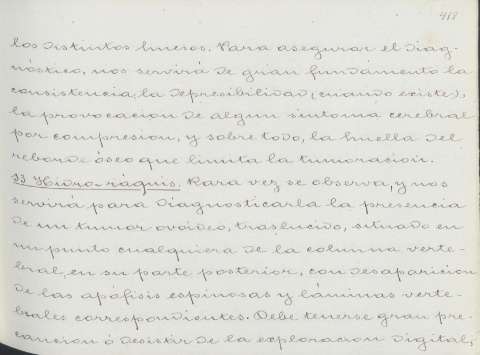 418
los distintos huesos. Para asegurar el diag-
nóstico, nos servirá de gran fundamento la
consistencia, la depresibilidad, (cuando existe),
la provocacion de algun sintoma cerebral
por compresion, y sobre todo, la huella del
reborde óseo que limita la tumoracion.
Hidro-ráquis. Rara vez se observa, y nos
servirá para diagnosticarla la presencia
de un tumor ovoideo, traslucido, situado en
un punto cualquiera de la columna verte-
bral, en su parte posterior, con desaparicion
de las apófisis espinosas y láminas verte-
brales correspondientes. Debe tenerse gran pre-
caucion ó desistir de la exploracion digital,